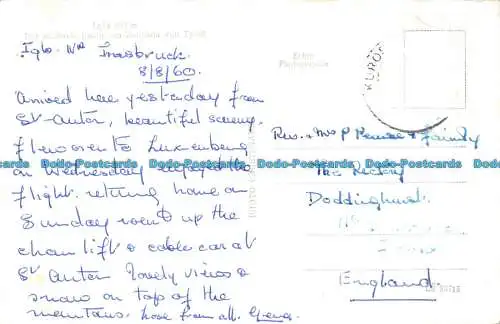 Igls. Nr Innsbruck.
8/8/60.
Arrived here yesterday from
St-Anton, beautiful scenery,
flew over to Luxembourg
on Wednesday enjoyed the
flight. returning home on
Sunday went up the
chair lift & cable car at
St Anton lovely views &
snow on top of the
mountains. love from all.
Echte
Photographie
EUROP
Rev. & Mrs P
The Rectory
Doddinghurst
Essex
England
Dodo-Postcards Dodo-Postcards Dodo-Postcards Dodo-Postcards Dodo-Postcards